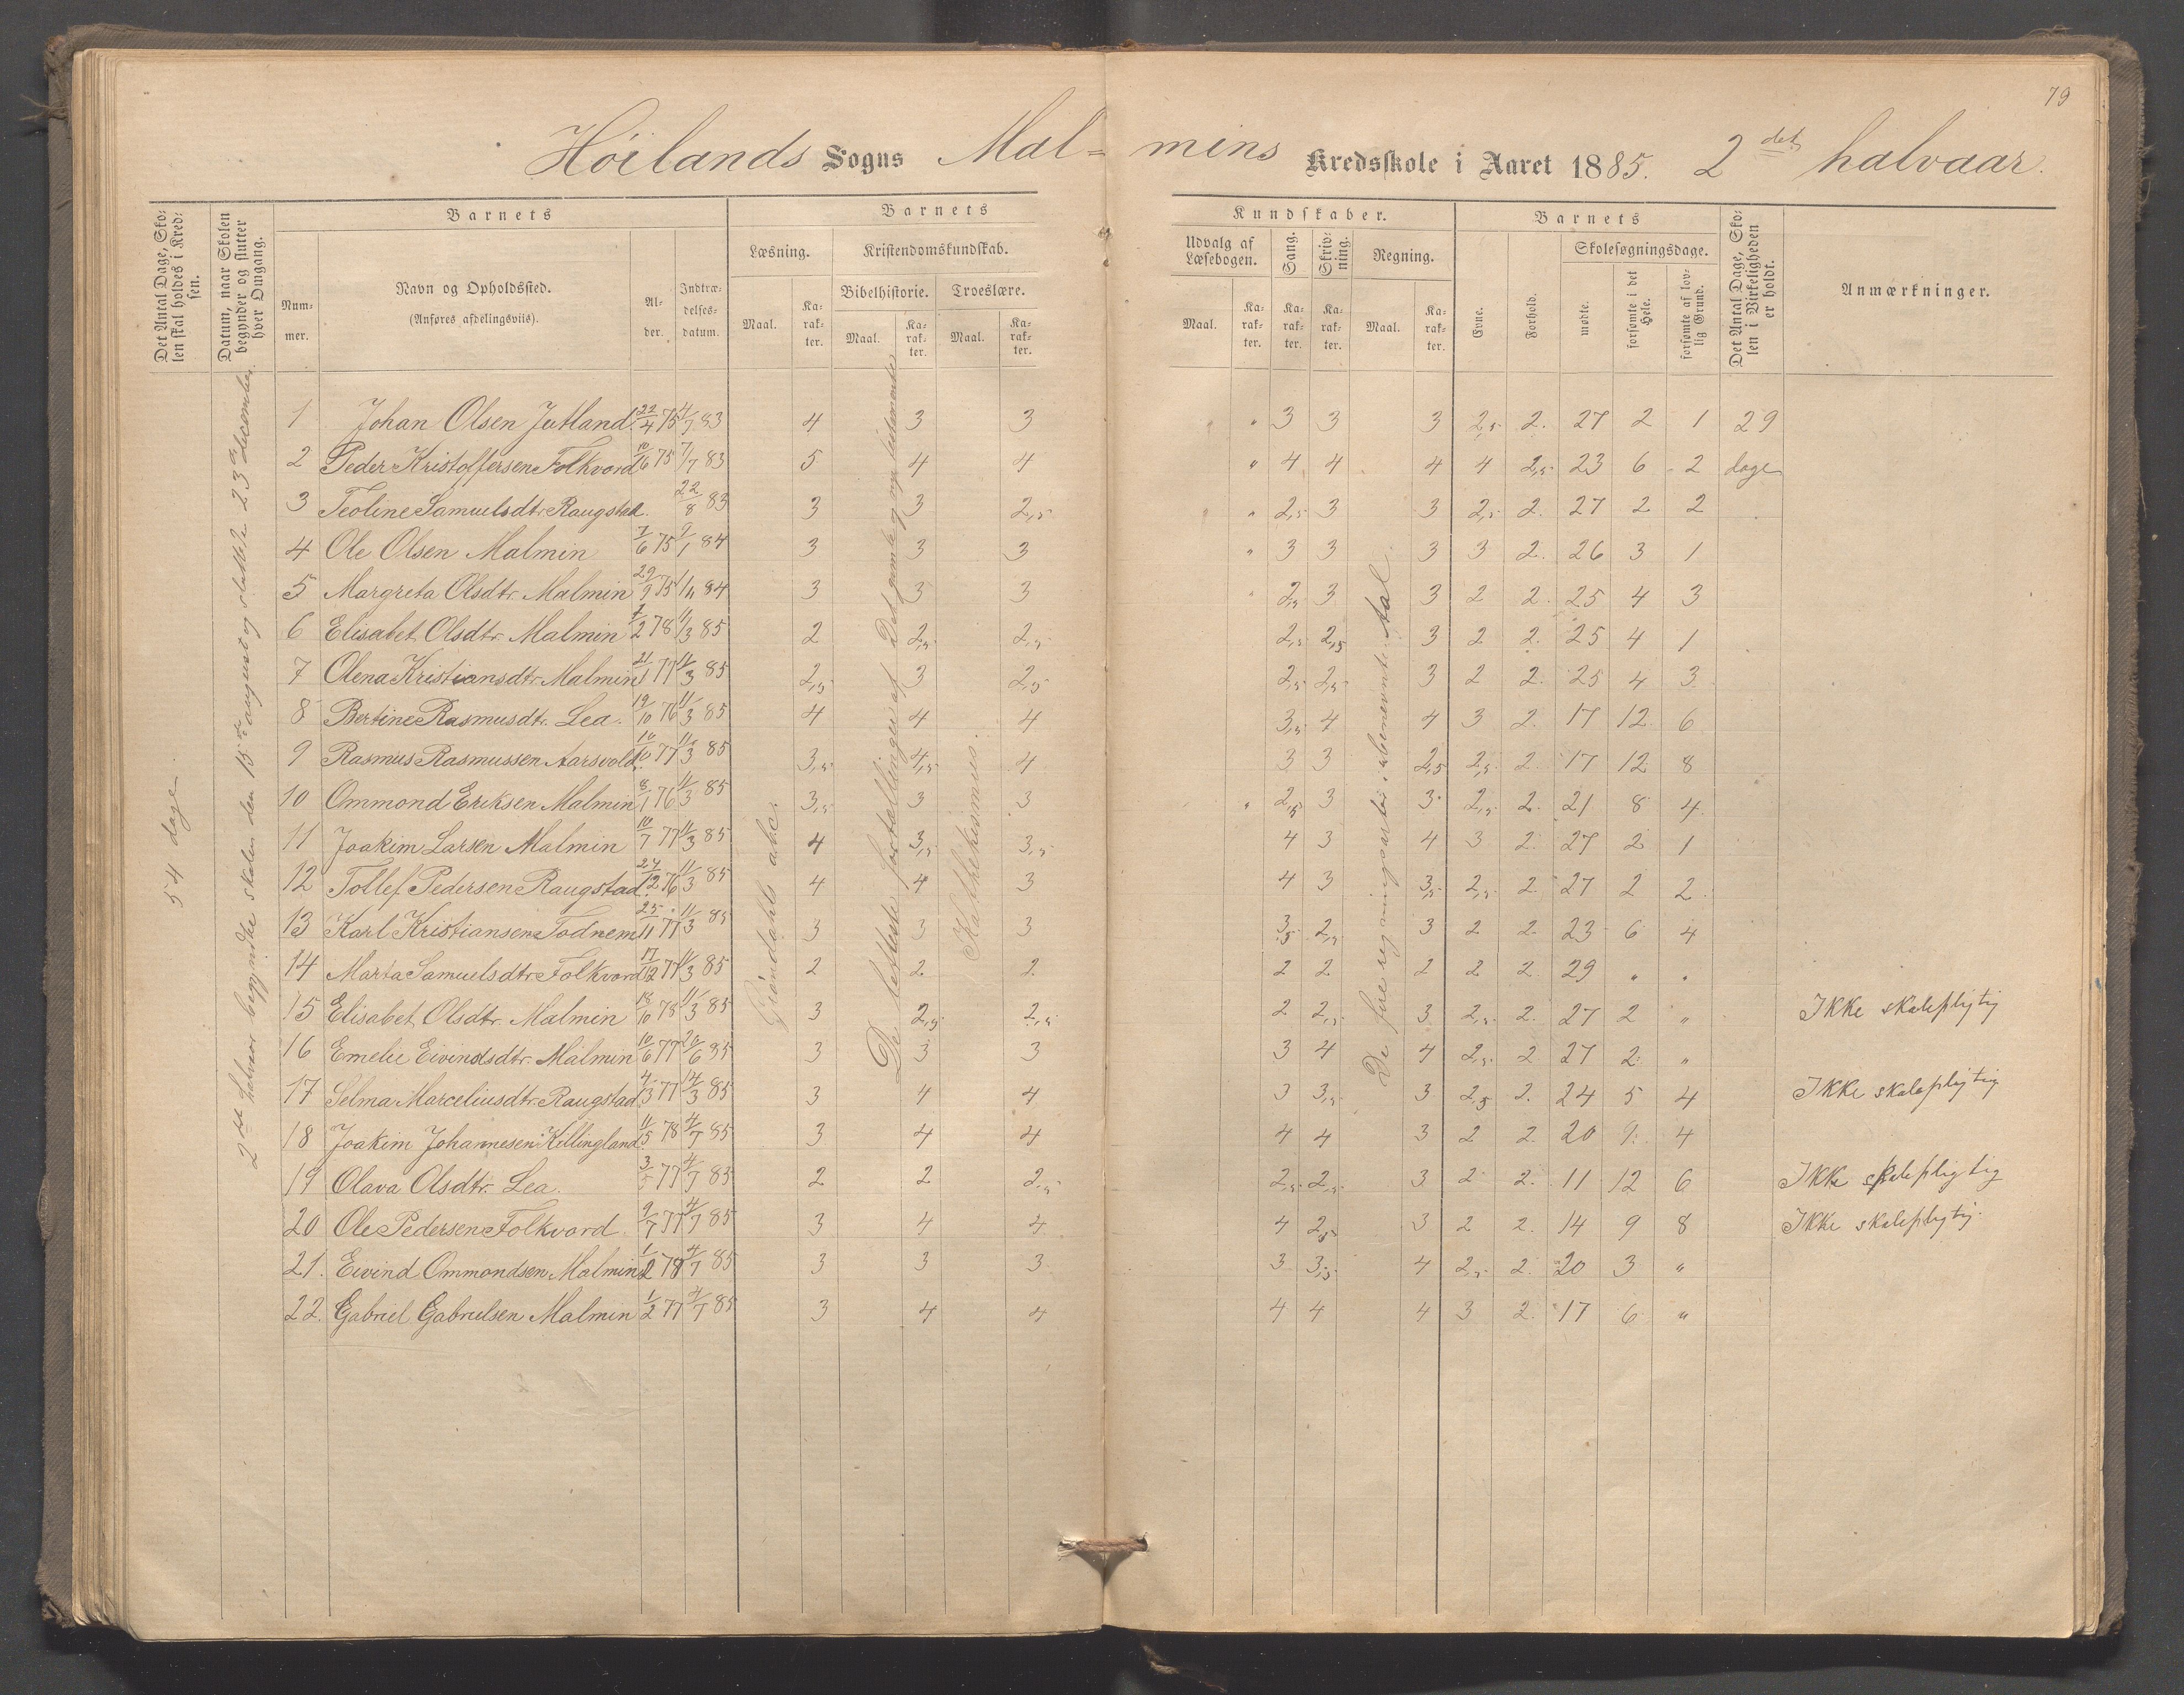 79
Höilands Sogns Mal= mins Kredsskole i Aaret 1885. 2det halvaar.
Det Antal Dage, Sko=
len skal holdes i Kred=
sen.
Datum, naar Skolen
begynder og slutter
hver Omgang.
Barnets
Barnets
Kundskaber.
Barnets
Det Antal Dage, Sko=
len i Virkeligheden
er holdt.
Anmærkninger.
Num=
mer.
Navn og Opholdssted.
(Anføres afdelingsvils).
Al=
der.
Indtræ=
delses=
datum.
Læsning.
Kristendomskundskab.
Bibelhistorie.
Troeslære.
Maal.
Ka=
rak=
ter.
Maal.
Ka=
rak=
ter.
Maal.
Ka=
rak=
ter.
Udvalg af
Læsebogen.
Sang.
Skriv=
ning.
Regning.
Maal.
Ka=
rak=
ter.
Ka=
rak=
ter.
Ka=
rak=
ter.
Maal.
Ka=
rak=
ter.
Evne.
Forhold.
Skolesøgningsdage.
mødte.
forsømte i det
Hele.
forsømte af lov=
lig Grund.
54 dage.
2det halvaar begyndte skolen den 15de august og sluttede 23de december.
Gröndahls abc.
De letteste fortællinger af Det gamle og nye testamente
Kathekismus.
De fire regningsarter i ubenevnte Tal.
1 Johan Olsen Jutland 22/4 75 4/7 83 4 3 3 " 3 3 3 2,5 2. 27 2 1 29
2 Peder Kristoffersen Folkvord 10/6 75 7/7 83 5 4 4 " 4 4 4 4 2,5 23 6 2 dage
3 Teoline Samuelsdtr Raugstad. 22/8 83 3 3 2,5 " 2,5 3 3 2,5 2. 27 2 2
4 Ole Olsen Malmin 7/6 75 9/1 84 3 3 3 " 3 3 3 3 2. 26 3 1
5 Margreta Olsdtr. Malmin 29/9 75 1/11 84 3 3 3 " 2,5 3 3 2 2. 25 4 3
6 Elisabet Olsdtr. Malmin 7/2 78 11/3 85 2 2,5 2,5 2,5 2,5 3 2 2. 25 4 1
7 Olena Kristiansdtr Malmin 21/1 77 11/3 85 2,5 3 2,5 2,5 2,5 3 2 2. 25 4 3
8 Bertine Rasmusdt. Lea. 19/10 76 11/3 85 4 4 4 3,5 4 4 3 2. 17 12 6
9 Rasmus Rasmussen Aarsvold 10/10 77 11/3 85 3,5 4,5 4 3 3 2,5 2,5 2. 17 12 8
10 Ommond Eriksen Malmin 8/1 76 11/3 85 3,5 3 3 " 2,5 3 3 2,5 2. 21 8 4
11 Joakim Larsen Malmin 10/7 77 11/3 85 4 3,5 3,5 4 3 4 3 2. 27 2 1
12 Tollef Pedersen Raugstad 27/12 76 11/3 85 4 4 3 4 3 3,5 2,5 2. 27 2 2
13 Karl Kristiansen Todnem 25/11 77 11/3 85 3 3 3 3,5 2,5 3 2 2. 23 6 4
14 Marta Samuelsdtr Folkvord 17/12 77 11/3 85 2 2 2 2 2 2 2 2 29 " "
15 Elisabet Olsdtr. Malmin 18/10 78 11/3 85 3 2,5 2,5 2 2,5 3 2,5 2. 27 2 " Ikke skolepligtig
16 Emelie Eivindsdtr. Malmin 10/6 77 26/6 85 3 3 3 3 4 4 2,5 2 27 2 "
17 Selma Marceliusdtr. Raugstad 4/3 77 14/3 85 3 4 4 3 3,5 3 2,5 2. 24 5 4 Ikke skolepligtig
18 Joakim Johannesen Kellingland 11/5 78 4/7 85 3 4 4 4 4 3 2 2. 20 9 4
19 Olava Olsdtr. Lea. 3/5 77 4/7 85 2 2 2,5 2,5 2,5 3 2 2. 11 12 6 Ikke skolepligtig
20 Ole Pedersen Folkvord. 9/7 77 4/7 85 3 4 4 4 2,5 3 2 2. 14 9 8 Ikke skolepligtig
21. Eivind Ommondsen Malmin 1/2 78 4/7 85 3 3 3 3 3,5 4 2,5 2. 20 3 "
22. Gabriel Gabrielsen Malmin 1/2 77 4/7 85 3 4 4 4 4 4 3 2. 17 6 "